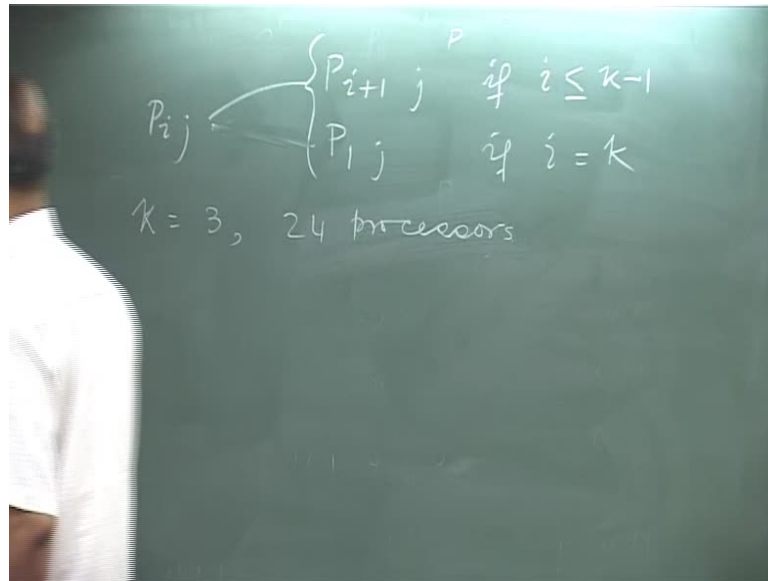 P
P i+1 j if i ≤ K-1
P i j
P 1 j if i = K
K = 3, 24 processors